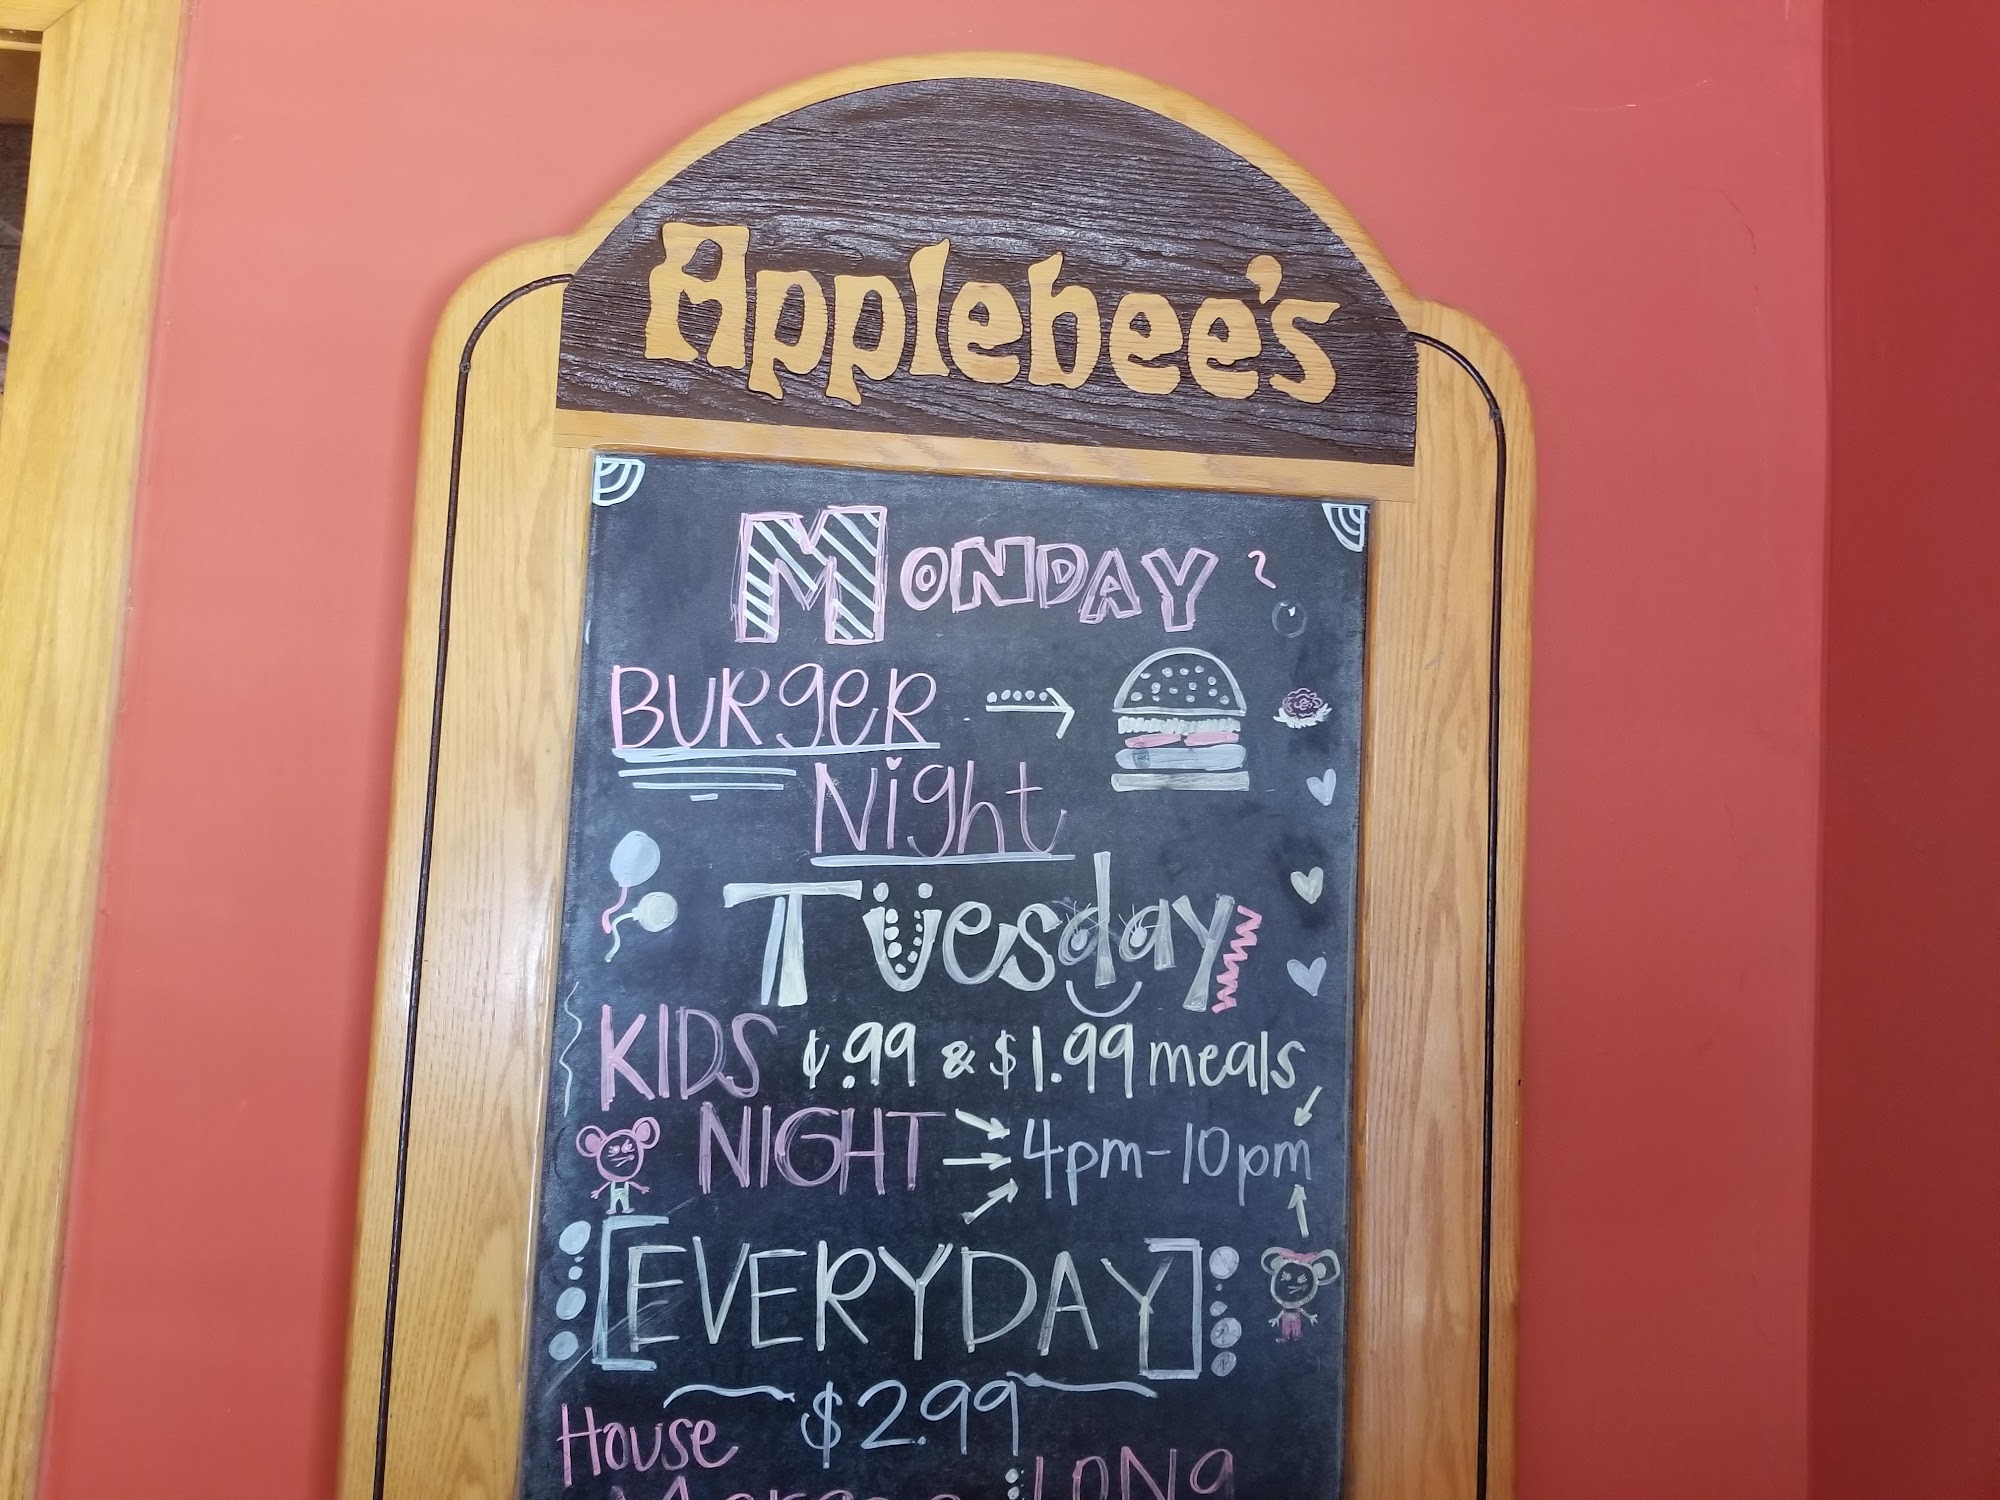 Applebee's
MONDAY
BURGER
Night
Tuesday
KIDS ¢.99 & $1.99 meals
NIGHT 4pm-10pm
[EVERYDAY]
$2.99
House